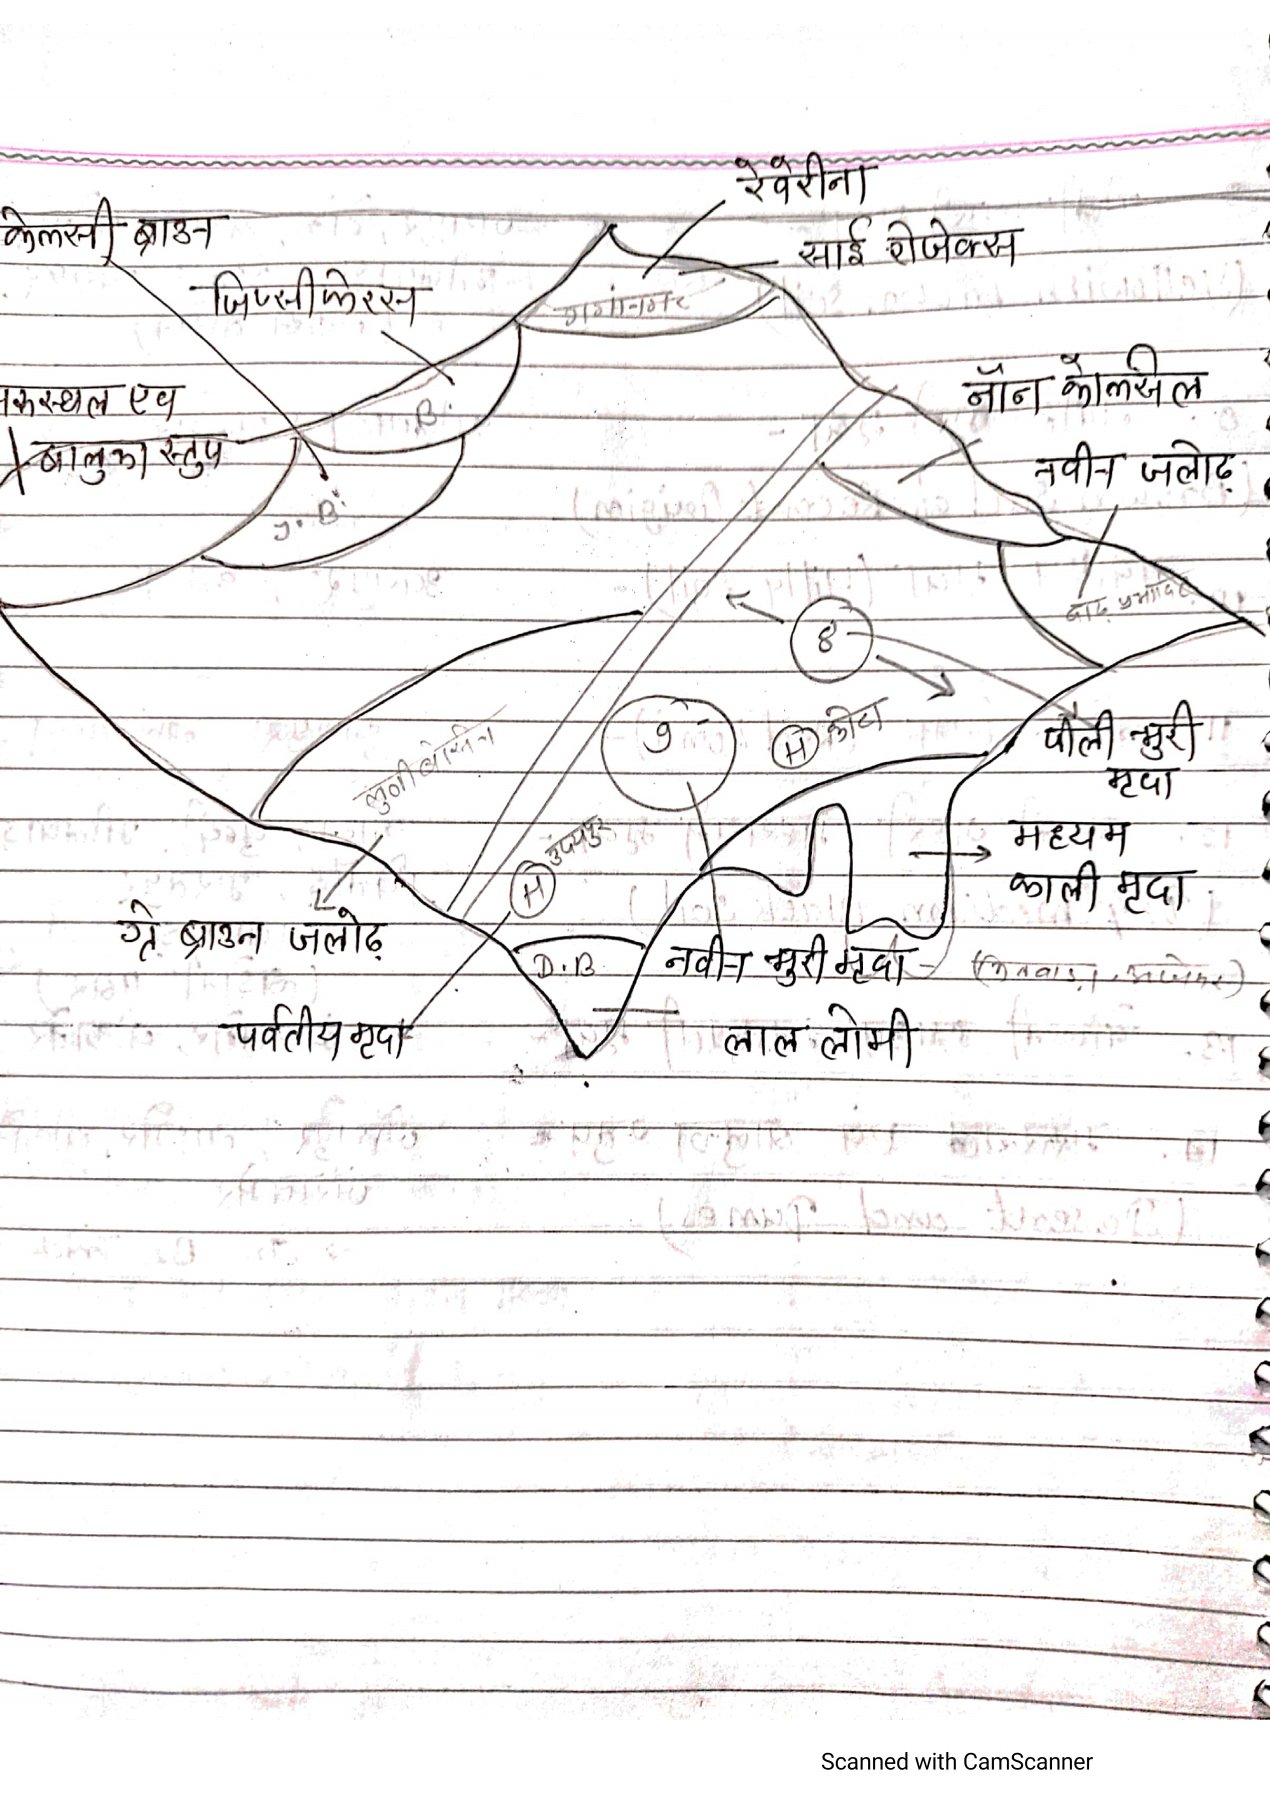 रेवेरीना
केलसी ब्राउन
साई रोजेक्स
जिप्सीफेरस
गंगानगर
नॉन केल्सिल
मरुस्थल एव
B.
बालुका स्तुप
नवीन जलोढ़
J.B.
बाढ़ प्रभावित
8
9
H कोटा
पीली भुरी
मृदा
लुनी बेसिन
मध्यम
H उदयपुर
काली मृदा
ग्रे ब्राउन जलोढ़
D.B
नवीन भुरी मृदा
पर्वतीय मृदा
लाल लोमी
Scanned with CamScanner